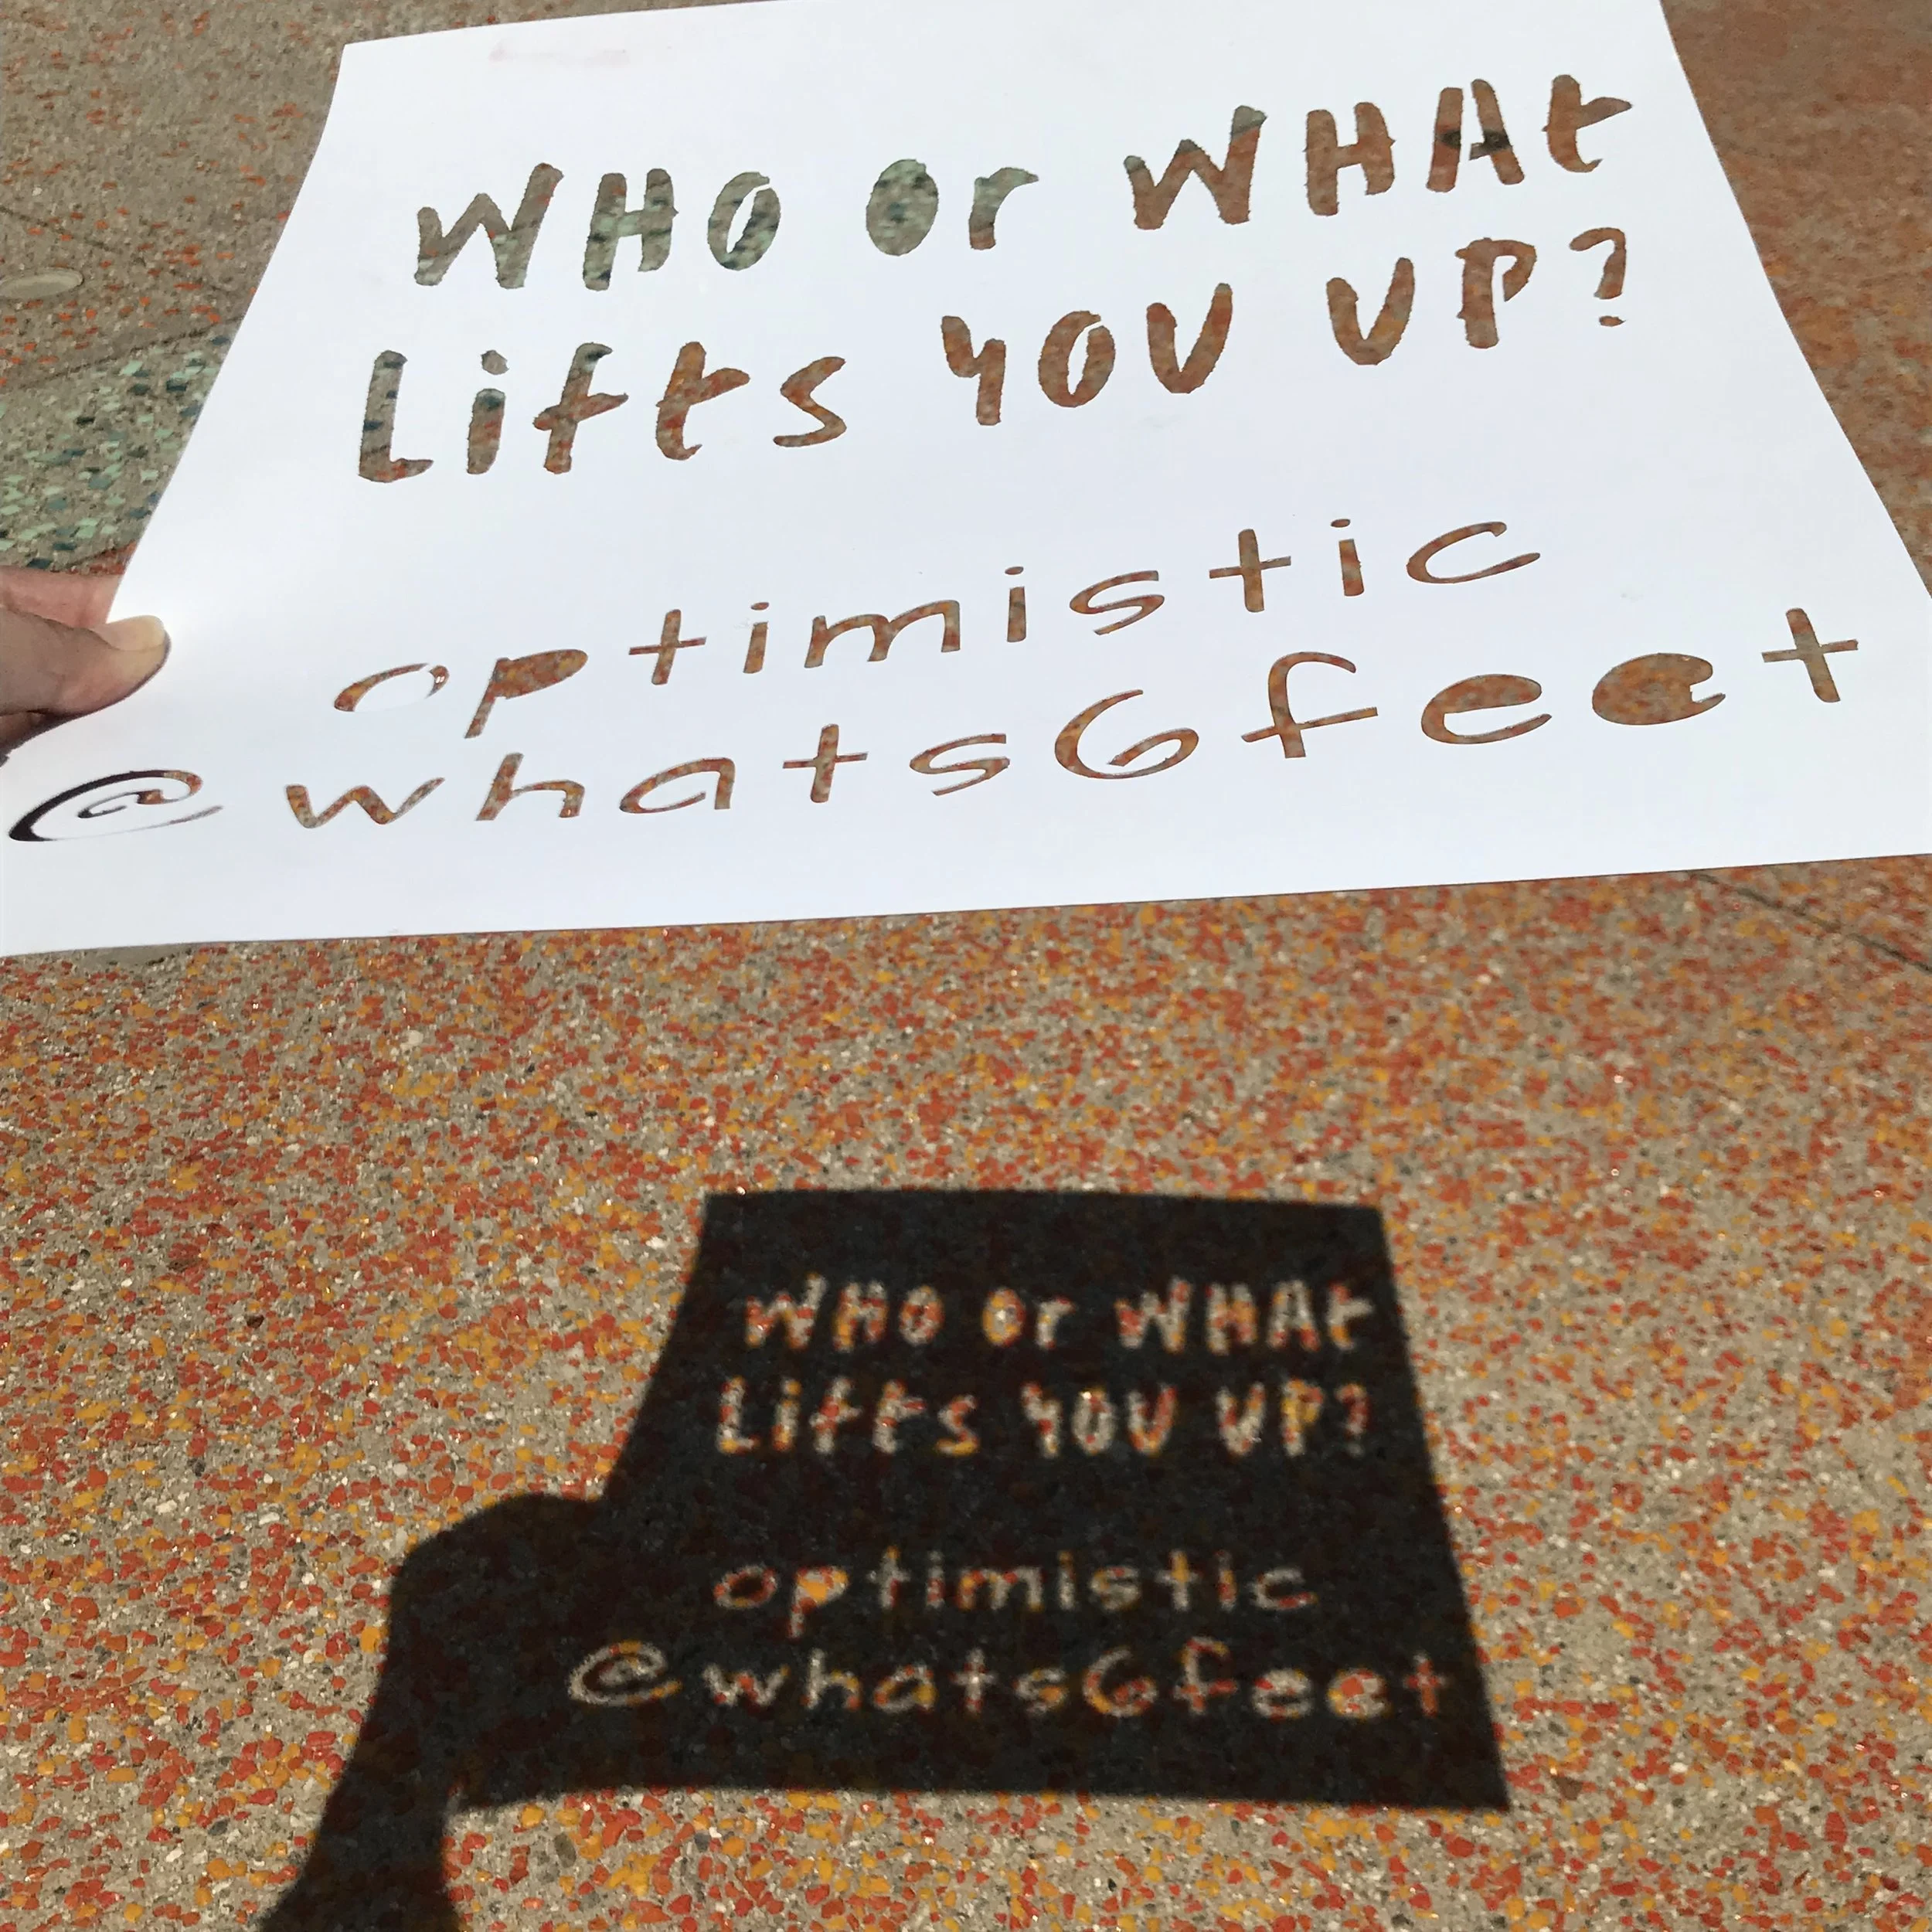 WHO Or WHAt
Lifts YOU UP?
optimistic
@whats6feet
WHO Or WHAt
Lifts YOU UP?
optimistic
@whats6feet